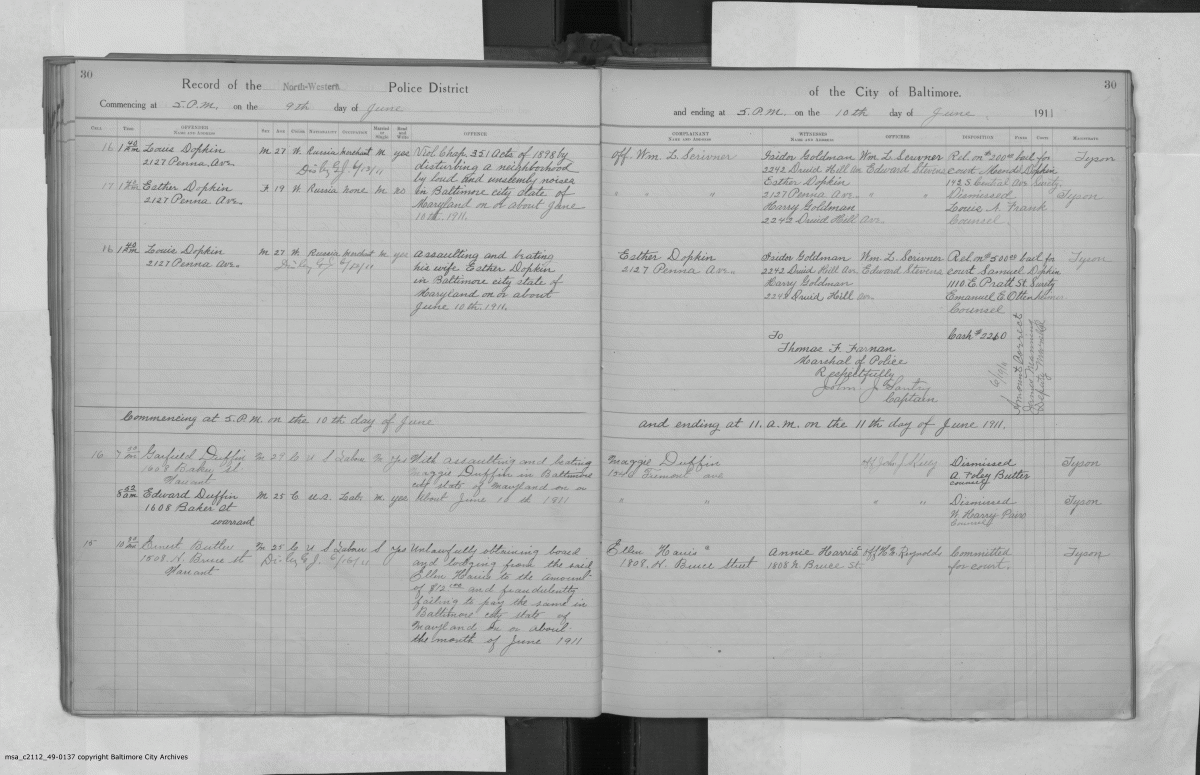 30
Record of the North-Western Police District
Commencing at 5 P.M. on the 9th day of June
CELL TIME OFFENDER NAME AND ADDRESS SEX AGE COLOR NATIVITY OCCUPATION Married or Single Read and Write OFFENSE
16 1 40 am Louis Dopkin M 27 W. Russia merchant M yes Viol Chap. 351 Acts of 1898 by
2127 Penna Ave. disturbing a neighborhood
Dis by G.J. 6/13/11 by loud and unseemly noises
17 1 40 am Esther Dopkin F 19 W Russia none M no in Baltimore city State of
2127 Penna Ave. Maryland on or about June
10th. 1911.
16 1 40 am Louis Dopkin M 27 W. Russia merchant M yes assaulting and beating
2127 Penna Ave. his wife Esther Dopkin
in Baltimore city state of
Maryland on or about
June 10th. 1911.
Commencing at 5. P.M. on the 10th day of June
16 Garfield Duffin M 29 C U S Labor M Yes With assaulting and beating
1608 Baker St Maggie Duffin in Baltimore
Warrant city state of Maryland on or
8 am Edward Duffin M 25 C U.S. Labr. M yes about June 10th 1911
1608 Baker St
warrant
15 Ernest Butler M 25 C U S Labour S Yes Unlawfully obtaining board
1508 N. Bruce st Dis by G.J. and lodging from the said
Warrant Ellen Harris to the amount
of $12 and fraudulently
failing to pay the same in
Baltimore city state of
Maryland on or about
the month of June 1911
30
of the City of Baltimore.
and ending at 5 P.M. on the 10th day of June 1911
COMPLAINANT NAME AND ADDRESS WITNESSES NAME AND ADDRESS OFFICERS DISPOSITION FINES COSTS MAGISTRATE
Off. Wm L. Scrivner Isidor Goldman Wm L. Scrivner Rel on $200 bail for Tyson
2242 Druid Hill Av Edward Stevens court Mendes Dopkin
Esther Dopkin 192 S Central Ave Surity
" " " 2127 Penna Ave. " " Dismissed Tyson
Harry Goldman Louis A. Frank
2242 Druid Hill Ave. Counsel
Esther Dopkin Isidor Goldman Wm L. Scrivner Rel on $500 bail for Tyson
2127 Penna Ave. 2242 Druid Hill Ave Edward Stevens court Samuel Dopkin
Harry Goldman 1110 E. Pratt St. Surity
2242 Druid Hill Ave. Emanuel E. Ottenheimer
Counsel
To Cash $22.60
Thomas F. Farnan
Marshal of Police
Respectfully
John J Gantry
Captain
Amount Correct
Deputy Marshal
and ending at 11. A.M. on the 11th day of June 1911.
Maggie Duffin Off John J. Kelly Dismissed Tyson
Fremont ave A. Foley Butler
Counsel
" " " " Dismissed Tyson
W. Harry
Counsel
Ellen Harris Annie Harris Off Reynolds Committed Tyson
1808. N. Bruce Street 1808 N. Bruce St. for court.
msa_c2112_49-0137 copyright Baltimore City Archives